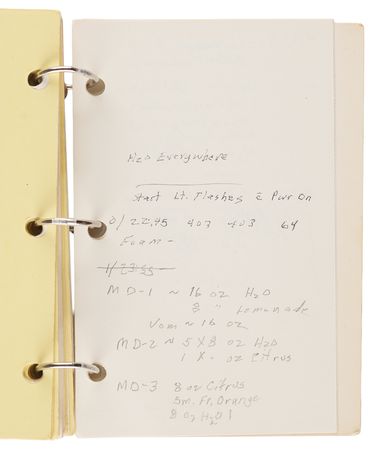 H2O Everywhere
Start Lt. Flashes c̄ Pwr On
0/22:45 407 403 64
Foam -
1/23:55
MD-1 ~ 16 oz H2O
8 " Lemonade
Vom ~ 16 oz
MD-2 ~ 5 X 8 oz H2O
1 X - oz Citrus
MD-3 8 oz Citrus
Sm. Fr. Orange
8 oz H2O 1